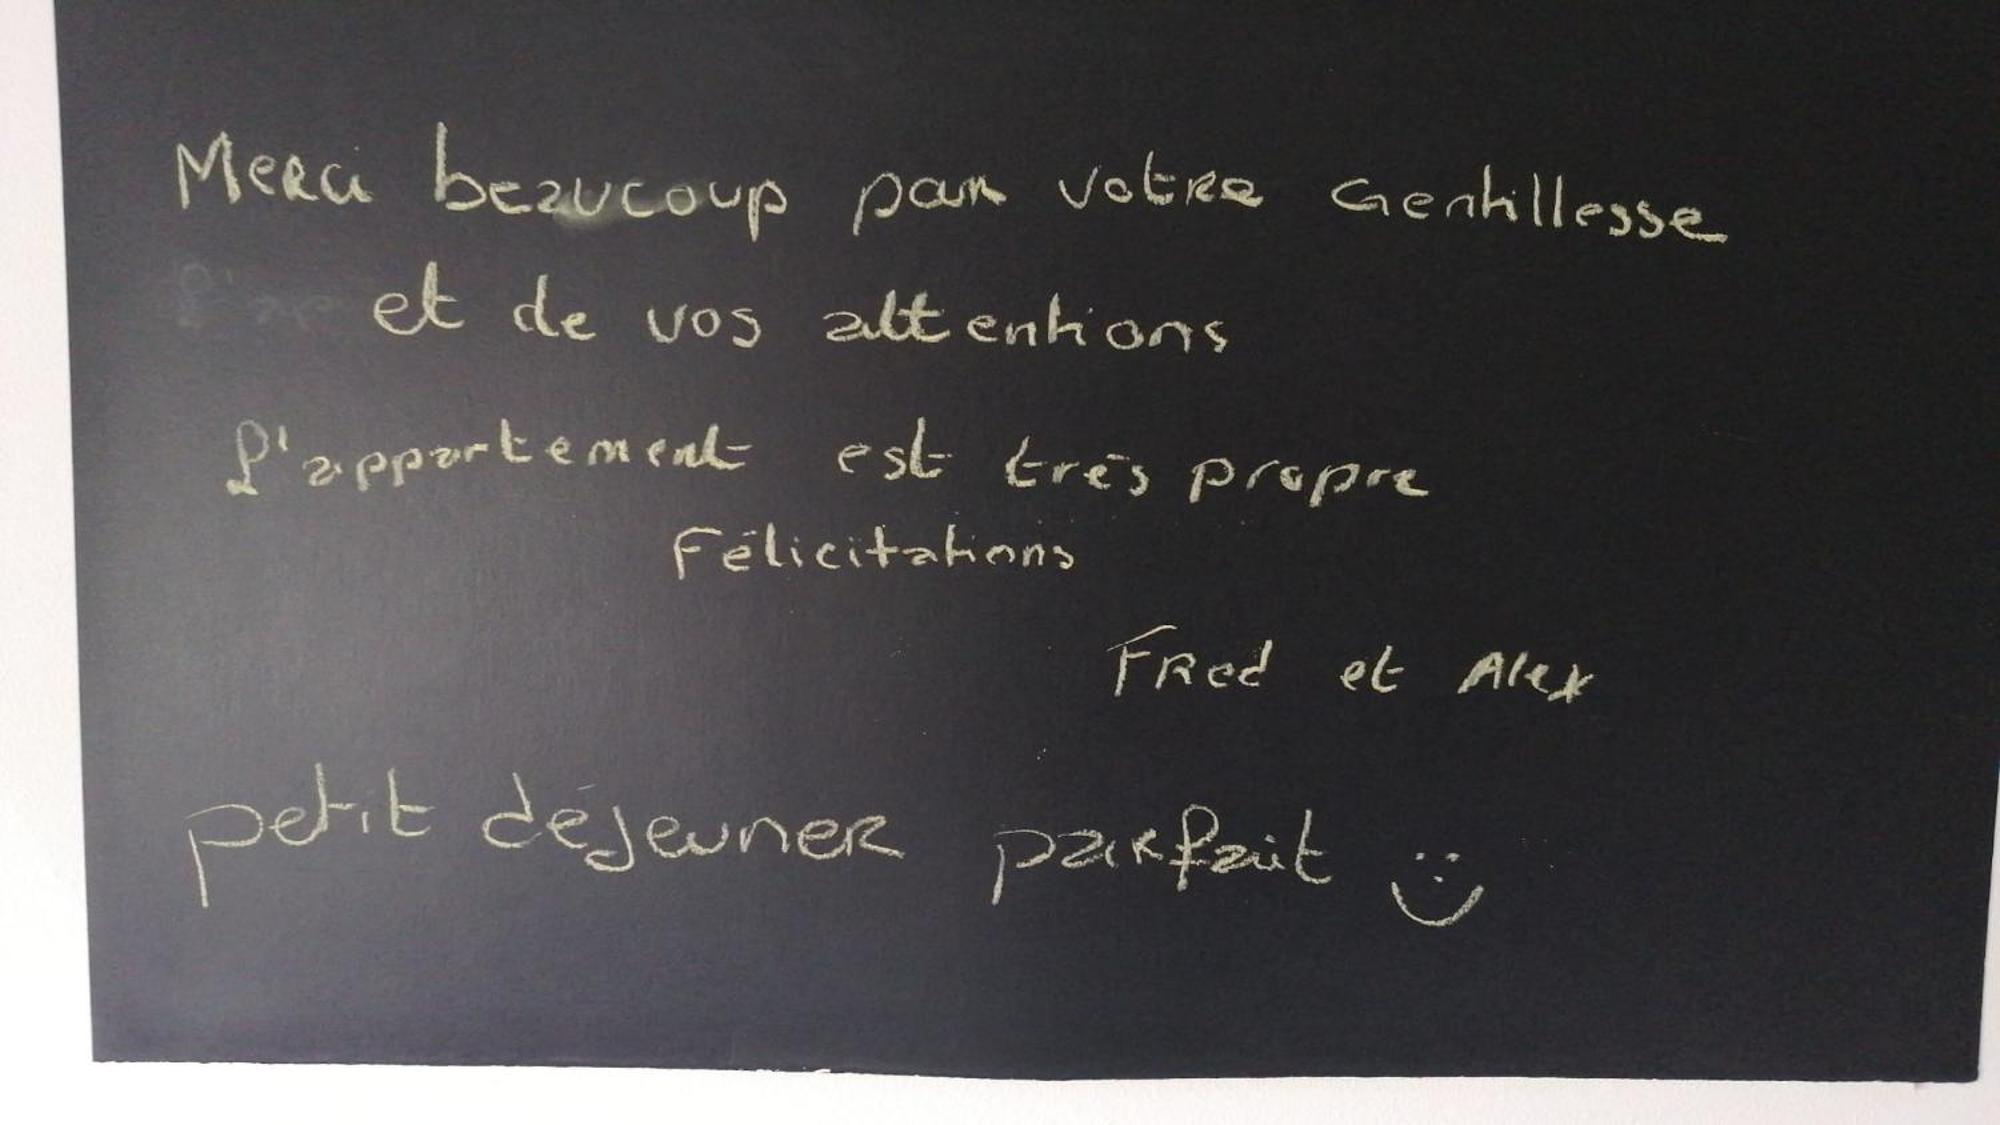 Merci beaucoup par votre Gentillesse
et de vos attentions
L'appartement est très propre
Félicitations
Fred et Alex
petit déjeuner parfait